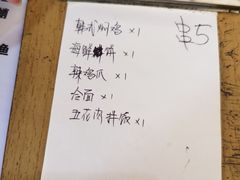 韩式焖鸡 ×1
串5
海鲜饼 ×1
辣鸡爪 ×1
冷面 ×1
五花肉拌饭 ×1